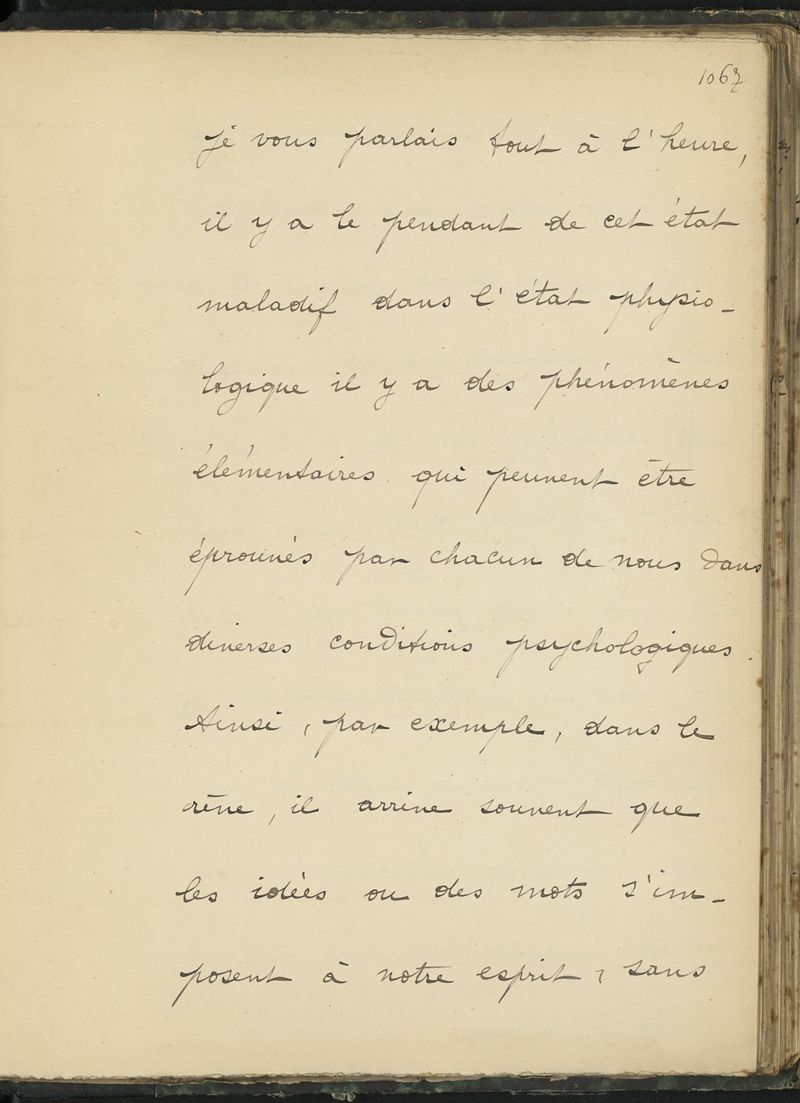 1067
je vous parlais tout à l'heure,
il y a le pendant de cet état
maladif dans l'état physio-
logique il y a des phénomènes
élémentaires qui peuvent être
éprouvés par chacun de nous dans
diverses conditions psychologiques.
Ainsi, par exemple, dans le
rêve, il arrive souvent que
les idées ou des mots s'im-
posent à notre esprit, sans